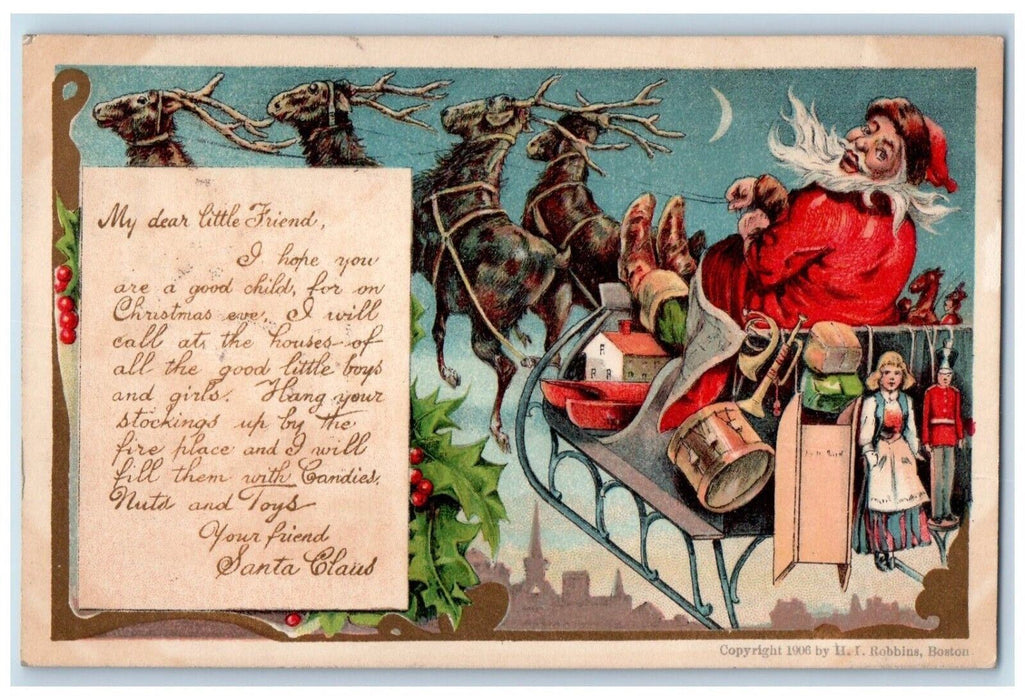 My dear little Friend,
I hope you
are a good child, for on
Christmas eve, I will
call at the houses of
all the good little boys
and girls. Hang your
stockings up by the
fire place and I will
fill them with Candies,
Nuts and Toys
Your friend
Santa Claus
Copyright 1906 by H. I. Robbins, Boston